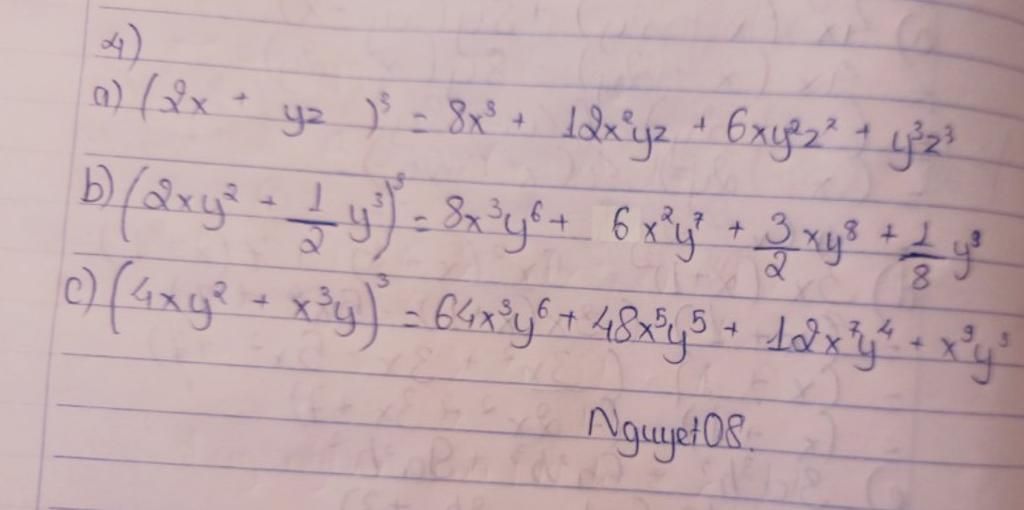 4)
a) (2x + yz )³ = 8x³ + 12x²yz + 6xy²z² + y³z³
b) (2xy² + 1/2 y³)³ = 8x³y⁶ + 6x²y⁷ + 3/2 xy⁸ + 1/8 y⁹
c) (4xy² + x³y)³ = 64x³y⁶ + 48x⁵y⁵ + 12x⁷y⁴ + x⁹y³
Nguyet08.